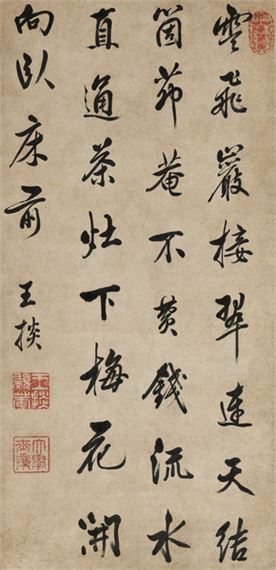 雲飛巖接翠連天結
箇茆菴不費錢流水
直通茶灶下梅花開
向臥床前
王掞